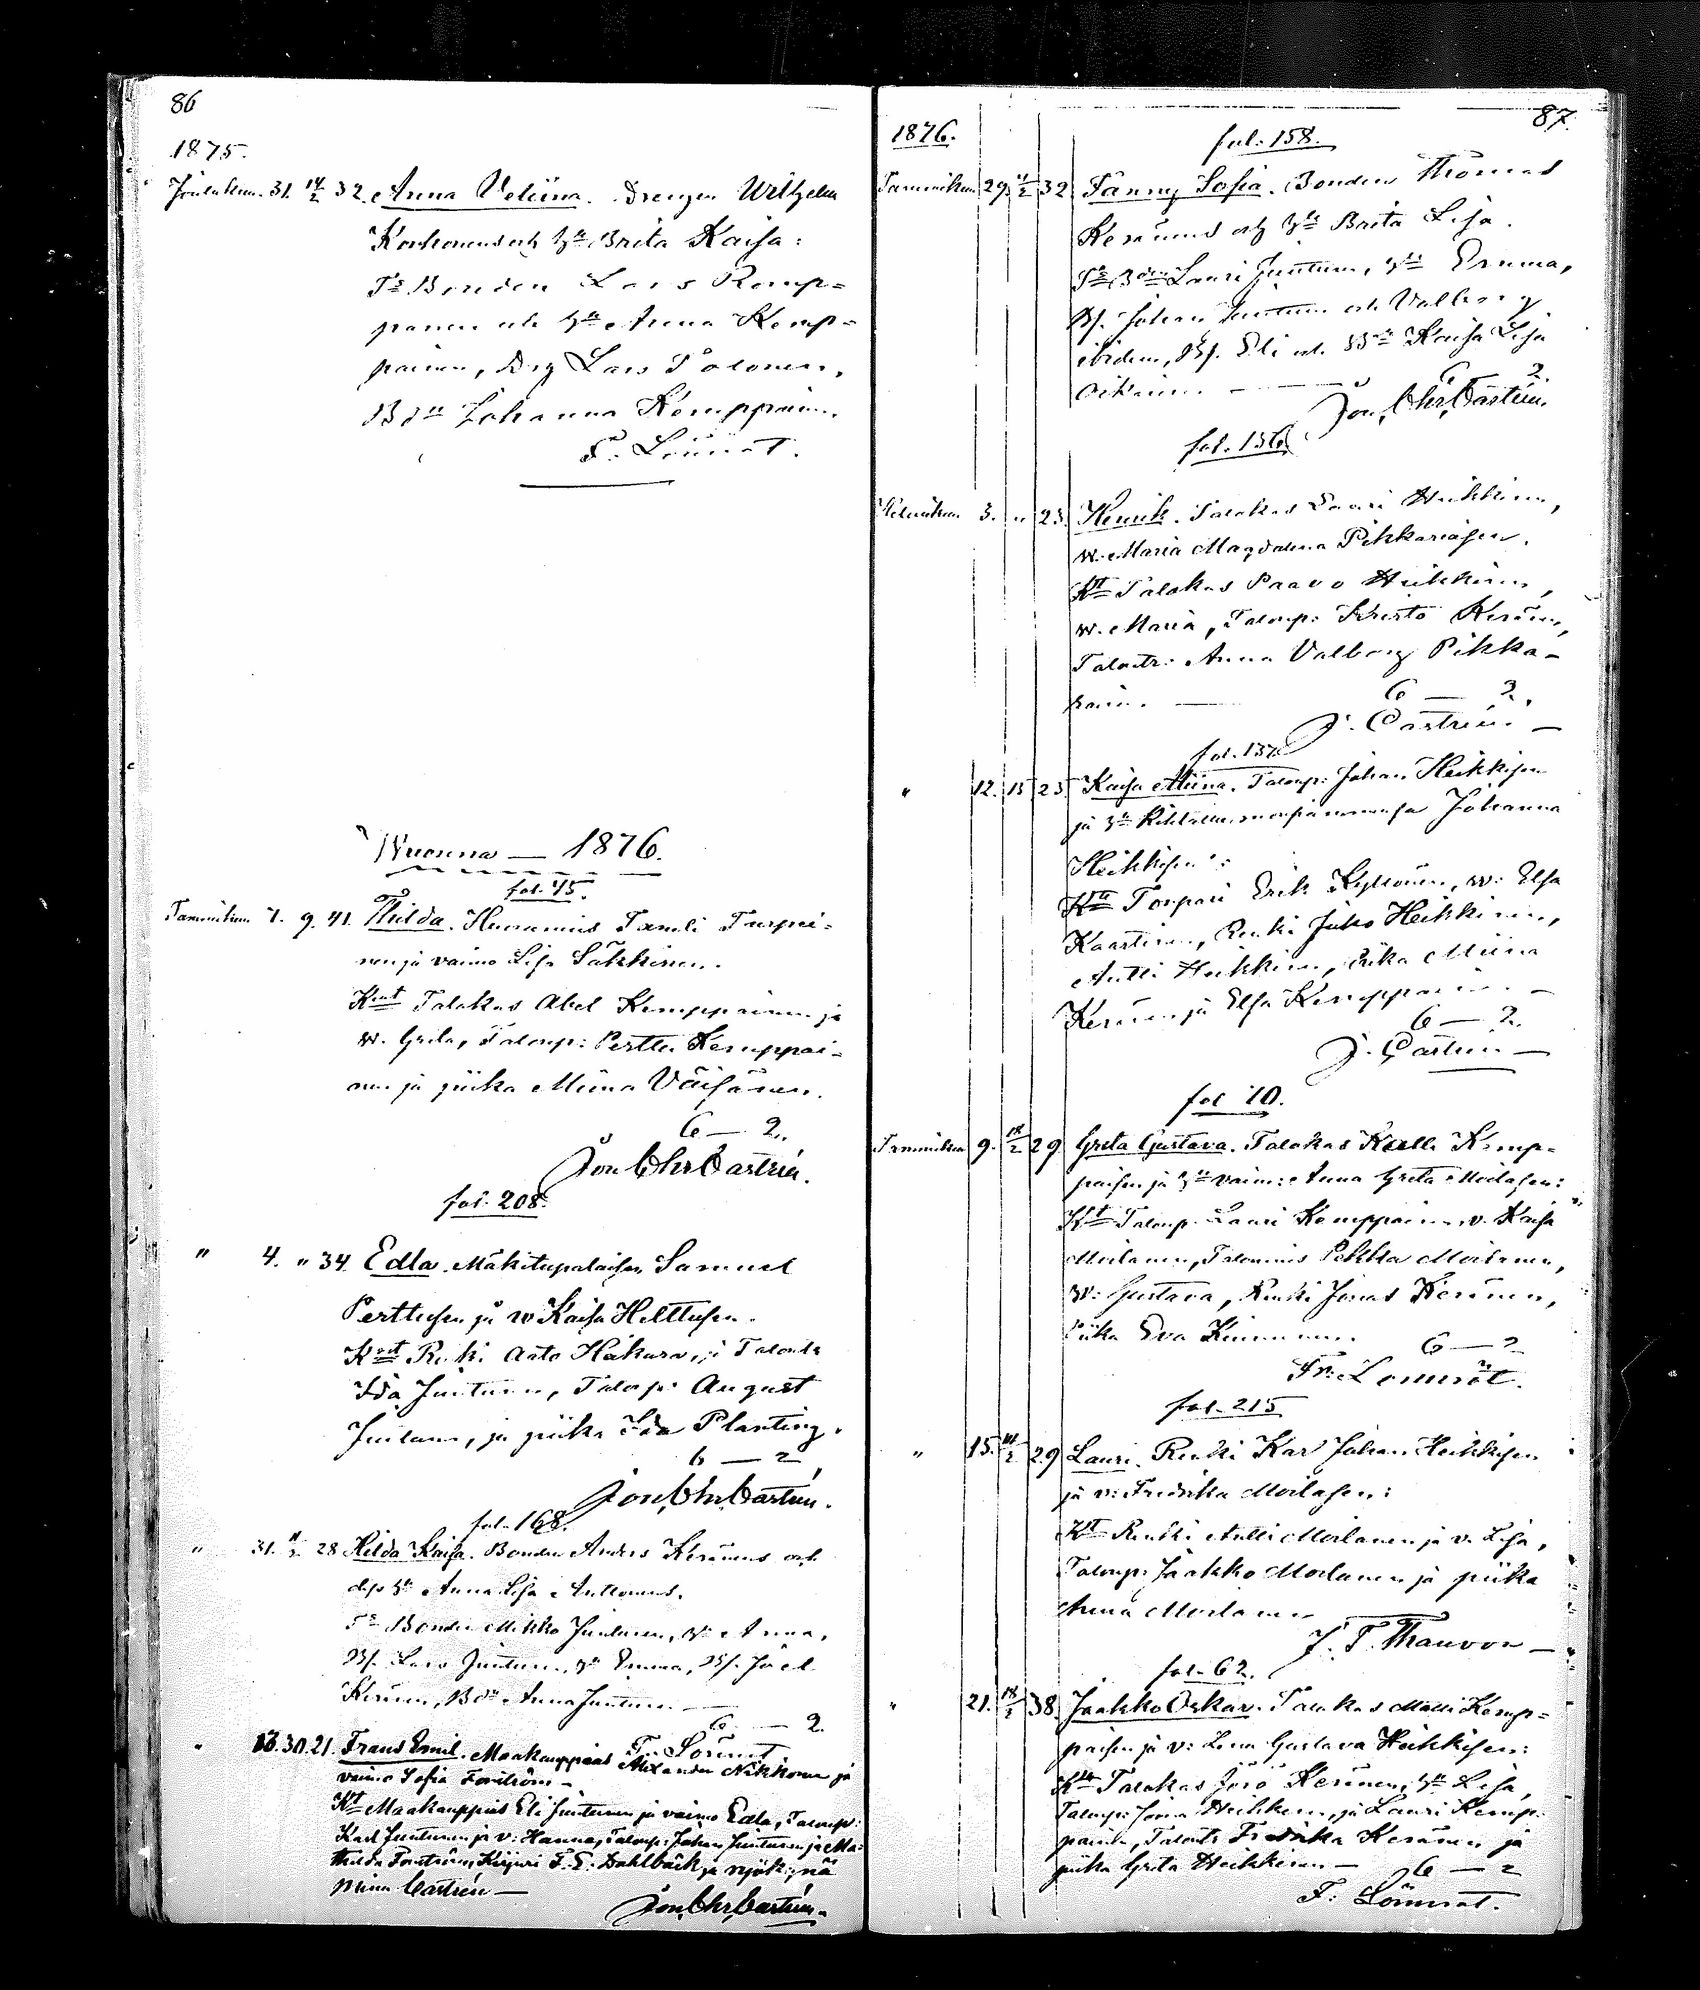 86
1875.
Joulukun. 31. 14/2 32. Anna Veliina. Drengen Wilhelm
Korhonens och h:u Brita Kaisa:
F:e Bonden Lars Kemp=
panen och h:u Anna Kemp=
painen, Drg Lars Tolonen,
Bd:r Johanna Kemppainen.
F. Lönnrot.
Wuonna — 1876.
fol. 45.
Tammikun 7. 9. 41. Hilda. Huonemies Tameli Turpei=
nen ja vaimo Lisa Säkkinen.
Kmt Talokas Abel Kemppainen ja
w. Greta, Talonp: Perttu Kemppai=
nen ja piika Miina Väisänen.
6 — 2.
Jon Chr Castrén.
fol. 208.
" 4. " 34. Edla. Mäkitupalaisen Samuel
Perttusen ja w Kaisa Helttusen.
Kmt Renki Aato Hakura, ja Talontr
Ida Juntunen, Talonp: August
Juntunen, ja piika Ida Planting.
6 — 2
Jon Chr Castrén.
fol. 168.
" 31. 11/2 28 Hilda Kaisa. Bonden Anders Keränens och
dess h:u Anna Lisa Anttonens.
F:e Bonden Mikko Juntunen, h:u Anna,
Bs. Lars Juntunen, h:u Emma, Bs. Joel
Keränen, Bd:r Anna Juntunen. —
6 — 2.
F. Lönnrot
" 13. 30. 21. Frans Emil. Maakauppias Alexander Nikkonen ja
vaimo Sofia Forström —
Kt Maakauppias Eli Juntunen ja vaimo Edla, Talonp:
Karl Juntunen ja v: Hanna, Talonp: Johan Juntunen ja Ma=
thilda Forström, Kirjuri F. E. Dahlbäck ja
Miina Castrén —
Jon Chr Castrén.
87.
1876.
fol. 158.
Tammikun 29. 11/2 32 Fanny Sofia. Bonden Thomas
Keränens och h:us Brita Lisa.
F:e Bden Lauri Juntunen, h:u Emma,
Bs. Johan Juntunen och Valborg
ibidem, Bs. Eli och Bd:r Kaisa Lisa
Oikarinen. — 6 2.
Jon Chr Castrén.
fol. 136.
Helmikun 3. " 23. Henrik. Talokas Lauri Heikkinen,
w. Maria Magdalena Pikkaraisen.
Kt Talokas Paavo Heikkinen,
w. Maria, Talonp: Kristo Keränen,
Talontr: Anna Valborg Pikka-
rain. — 6 — 2.
J. Castrén —
fol. 137.
" 12. 13 23 Kaisa Miina. Talonp: Johan Heikkisen
ja h:n Johanna
Heikkisen:
Kt Torpari Erik Kyllönen, w: Elsa
Kaartinen, Renki Juho Heikkinen,
Antti Heikkinen, Piika Miina
Keränen ja Elsa Kemppainen. —
6 — 2.
J. Castrén —
fol 10.
Tammikun 9. 18/2 29 Greta Gustava. Talokas Kalle Kemp=
paisen ja h:n vaim: Anna Greta Moilasen:
Kt Talonp. Lauri Kemppainen w. Kaisa
Moilanen, Talonmies Pekka Moilanen,
w: Gustava, Renki Jonas Keränen,
Piika Eva Kinnunen. 6 — 2
Fr: Lönnrot.
fol. 215
" 15. 14/2 29 Lauri. Renki Karl Johan Heikkisen
ja v: Fredrika Moilasen:
Kt Renki Antti Moilanen ja v. Lisa,
Talonp: Jaakko Moilanen ja piika
Anna Moilanen
J. F. Thauvon —
fol. 62.
" 21. 18/2 38. Jaakko Oskar. Talokas Matti Kemp=
paisen ja v: Lena Gustava Heikkisen:
Kt Talokas Jörö Keränen, h:u Lisa,
Talonp: Joona Heikkinen, ja Lauri Kemp-
painen, Talontr Fredrika Keränen ja
piika Greta Heikkinen — 6 — 2
F: Lönnrot.